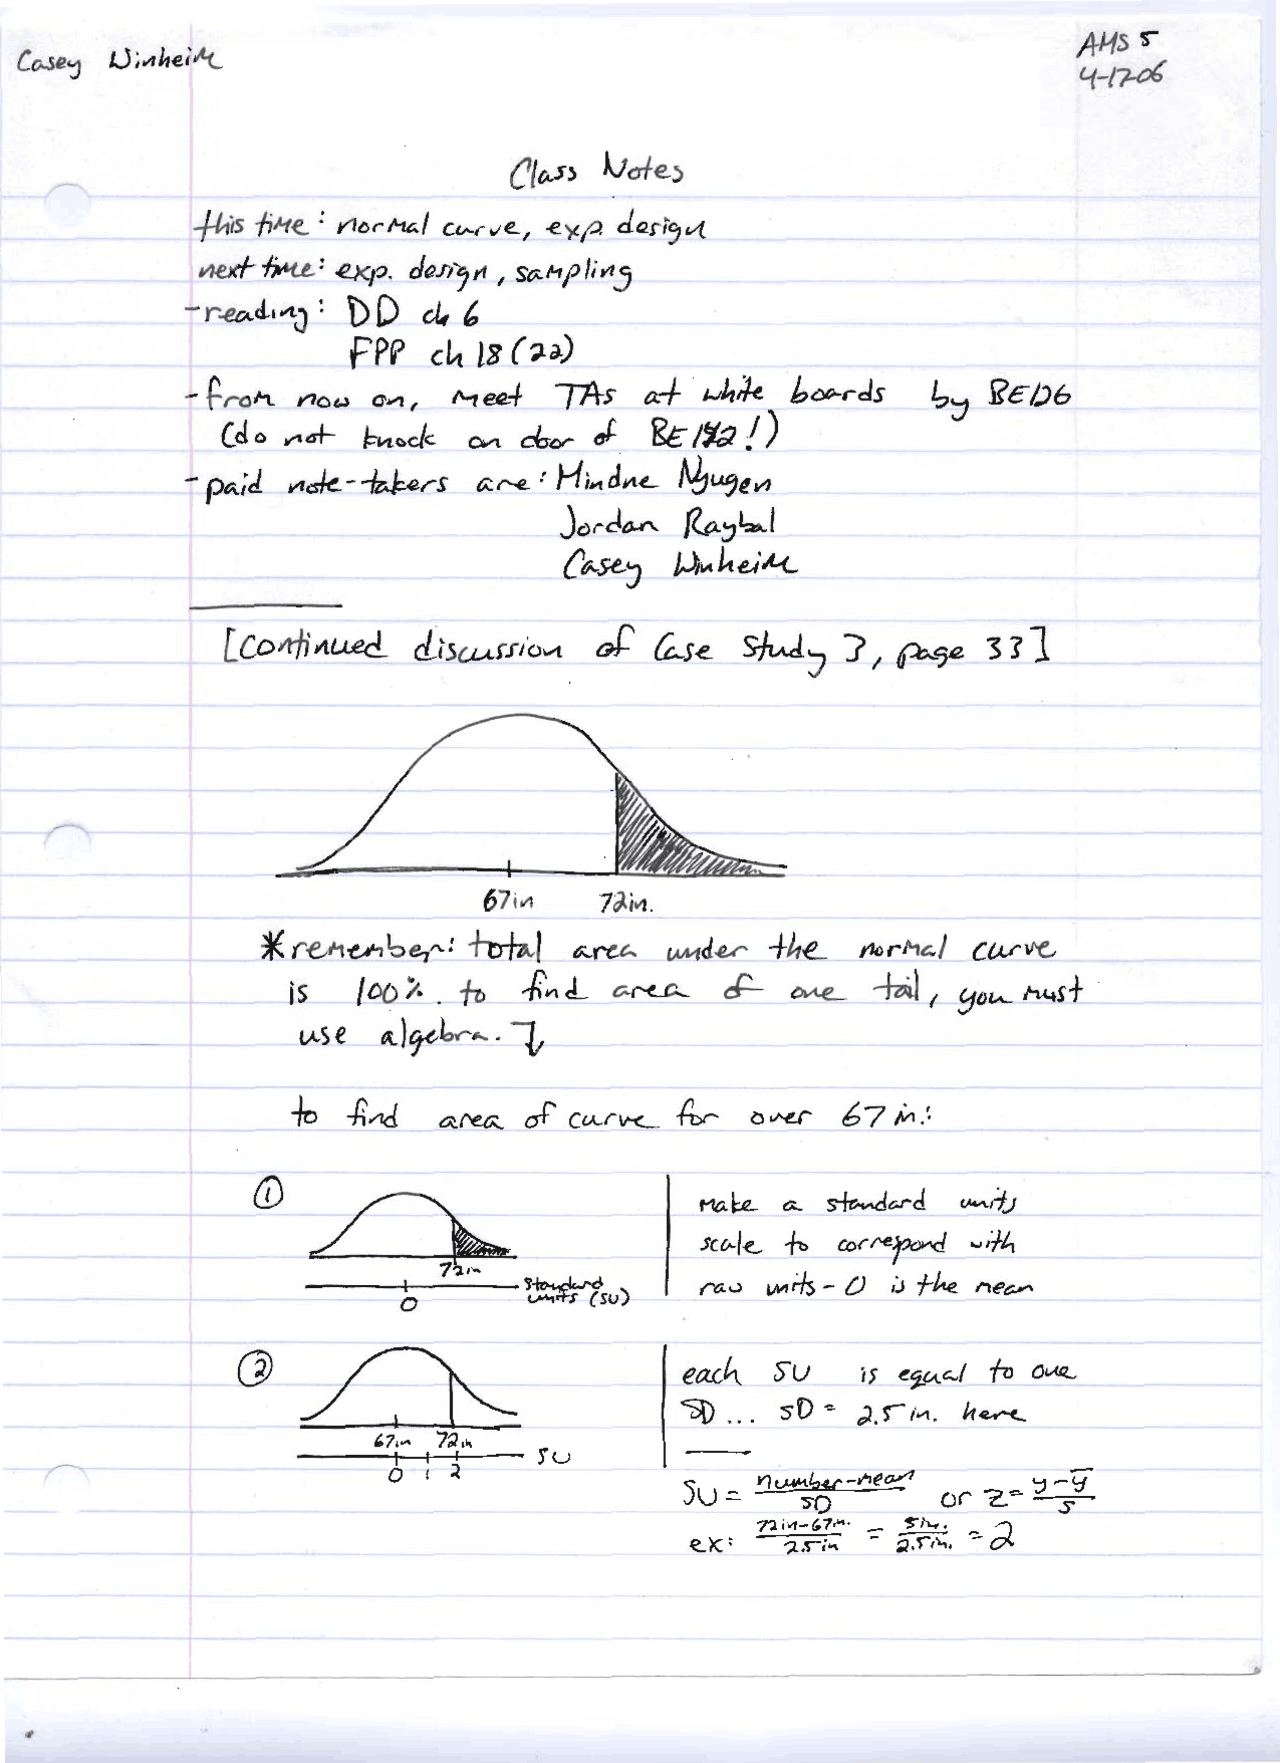 Casey Winheim
AMS 5
4-17-06
Class Notes
this time: normal curve, exp. design
next time: exp. design, sampling
-reading: DD ch 6
FPP ch 18 (22)
-from now on, meet TAs at white boards by
(do not knock on door of
-paid note-takers are: Mindne Nyugen
Jordan Raybal
Casey Winheim
[continued discussion of Case Study 3, page 33]
67in 72in.
*remember: total area under the normal curve
is 100%. to find area of one tail, you must
use algebra. ↓
to find area of curve for over 67 in.:
①
72in
standard
units (SU)
0
make a standard units
scale to correspond with
raw units - 0 is the mean
②
67in 72in
SU
0 1 2
each SU is equal to one
SD... SD = 2.5 in. here
SU = number-mean / SD or z = y-ȳ / s
ex: 72in-67in. / 2.5in = 5in. / 2.5in. = 2